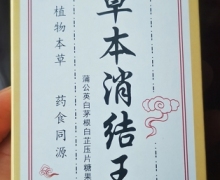 草本消结王
蒲公英白茅根白芷压片糖果
植物本草
药食同源